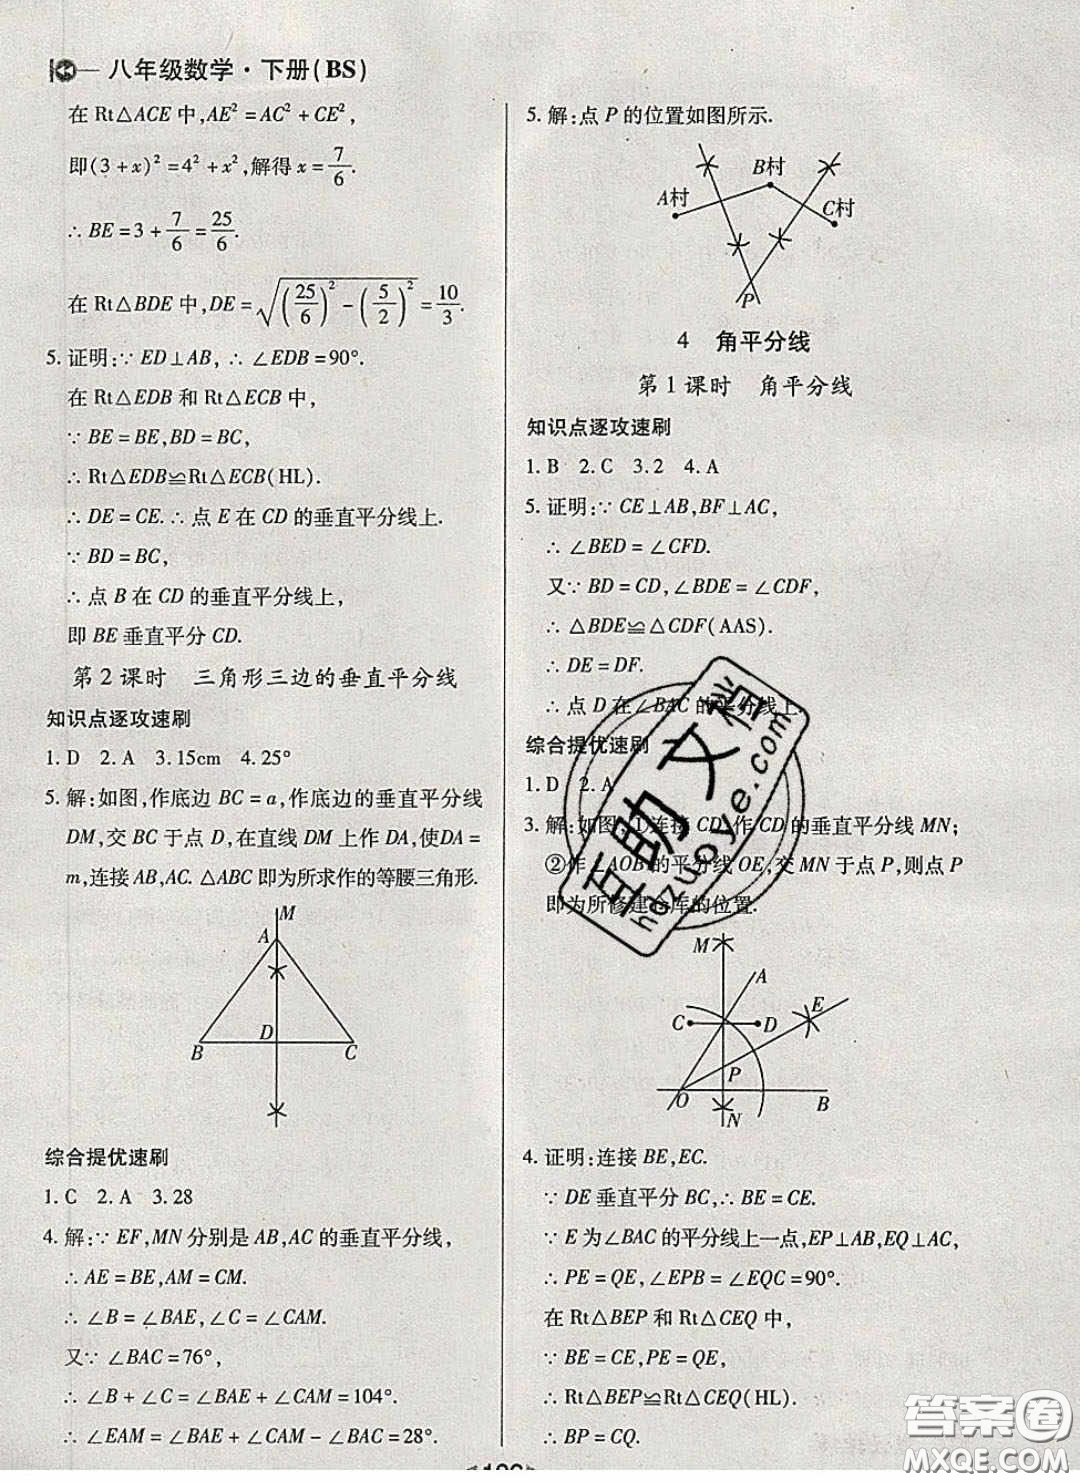 八年级数学·下册(BS)
在 Rt△ACE 中,AE²=AC²+CE²,
即(3+x)²=4²+x²,解得 x=7/6.
∴ BE=3+7/6=25/6.
在 Rt△BDE 中,DE=√((25/6)²-(5/2)²)=10/3.
5. 证明:∵ ED⊥AB, ∴ ∠EDB=90°.
在 Rt△EDB 和 Rt△ECB 中,
∵ BE=BE,BD=BC,
∴ Rt△EDB≌Rt△ECB(HL).
∴ DE=CE. ∴ 点 E 在 CD 的垂直平分线上.
∵ BD=BC,
∴ 点 B 在 CD 的垂直平分线上,
即 BE 垂直平分 CD.
第 2 课时 三角形三边的垂直平分线
知识点逐攻速刷
1. D 2. A 3. 15cm 4. 25°
5. 解:如图,作底边 BC=a,作底边的垂直平分线
DM,交 BC 于点 D,在直线 DM 上作 DA,使DA=
m,连接 AB,AC. △ABC 即为所求作的等腰三角形.
M
A
D
B
C
综合提优速刷
1. C 2. A 3. 28
4. 解:∵ EF,MN 分别是 AB,AC 的垂直平分线,
∴ AE=BE,AM=CM.
∴ ∠B=∠BAE,∠C=∠CAM.
又∵ ∠BAC=76°,
∴ ∠B+∠C=∠BAE+∠CAM=104°.
∴ ∠EAM=∠BAE+∠CAM-∠BAC=28°.
5. 解:点 P 的位置如图所示.
B村
A村
C村
P
4 角平分线
第 1 课时 角平分线
知识点逐攻速刷
1. B 2. C 3. 2 4. A
5. 证明:∵ CE⊥AB,BF⊥AC,
∴ ∠BED=∠CFD.
又∵ BD=CD,∠BDE=∠CDF,
∴ △BDE≌△CDF(AAS).
∴ DE=DF.
∴ 点 D 在∠BAC 的平分线上.
综合提优速刷
1. D 2. A
3. 解:如图,①连接 CD,作 CD 的垂直平分线 MN;
②作∠AOB 的平分线 OE,交 MN 于点 P,则点 P
即为所修建仓库的位置.
M
A
E
C
D
P
O
N
B
4. 证明:连接 BE,EC.
∵ DE 垂直平分 BC,∴ BE=CE.
∵ E 为∠BAC 的平分线上一点,EP⊥AB,EQ⊥AC,
∴ PE=QE,∠EPB=∠EQC=90°.
在 Rt△BEP 和 Rt△CEQ 中,
∵ BE=CE,PE=QE,
∴ Rt△BEP≌Rt△CEQ(HL).
∴ BP=CQ.
互助文档
hdzuoye.com
答案圈
MXQE.COM